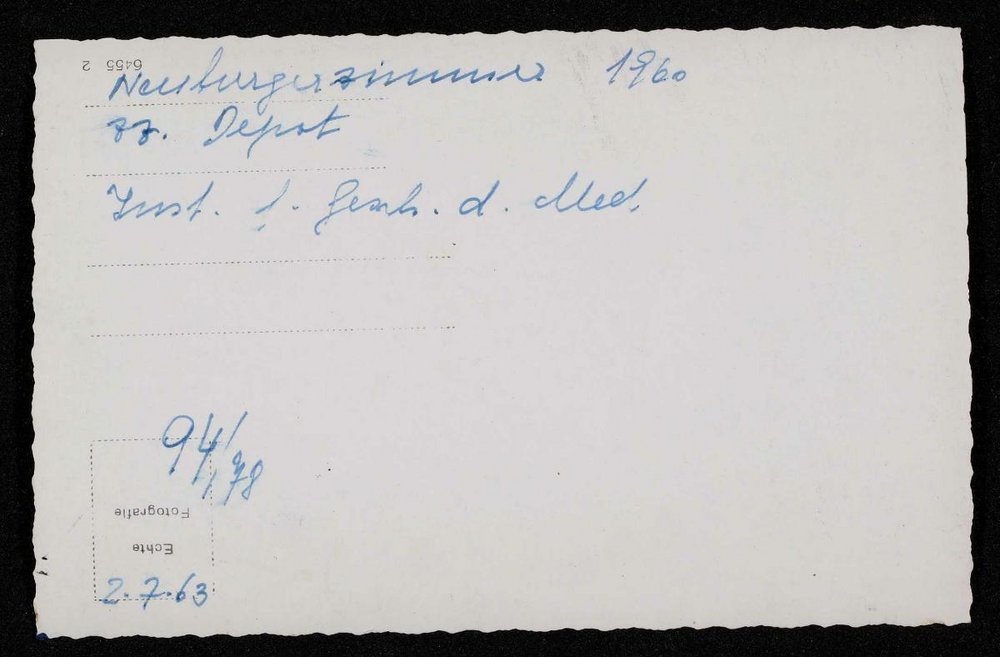 6455 2
Neuburgerzimmer 1960
zz. Depot
Inst. f. Gesch. d. Med.
94/
,78
Fotografie
Echte
2.7.63